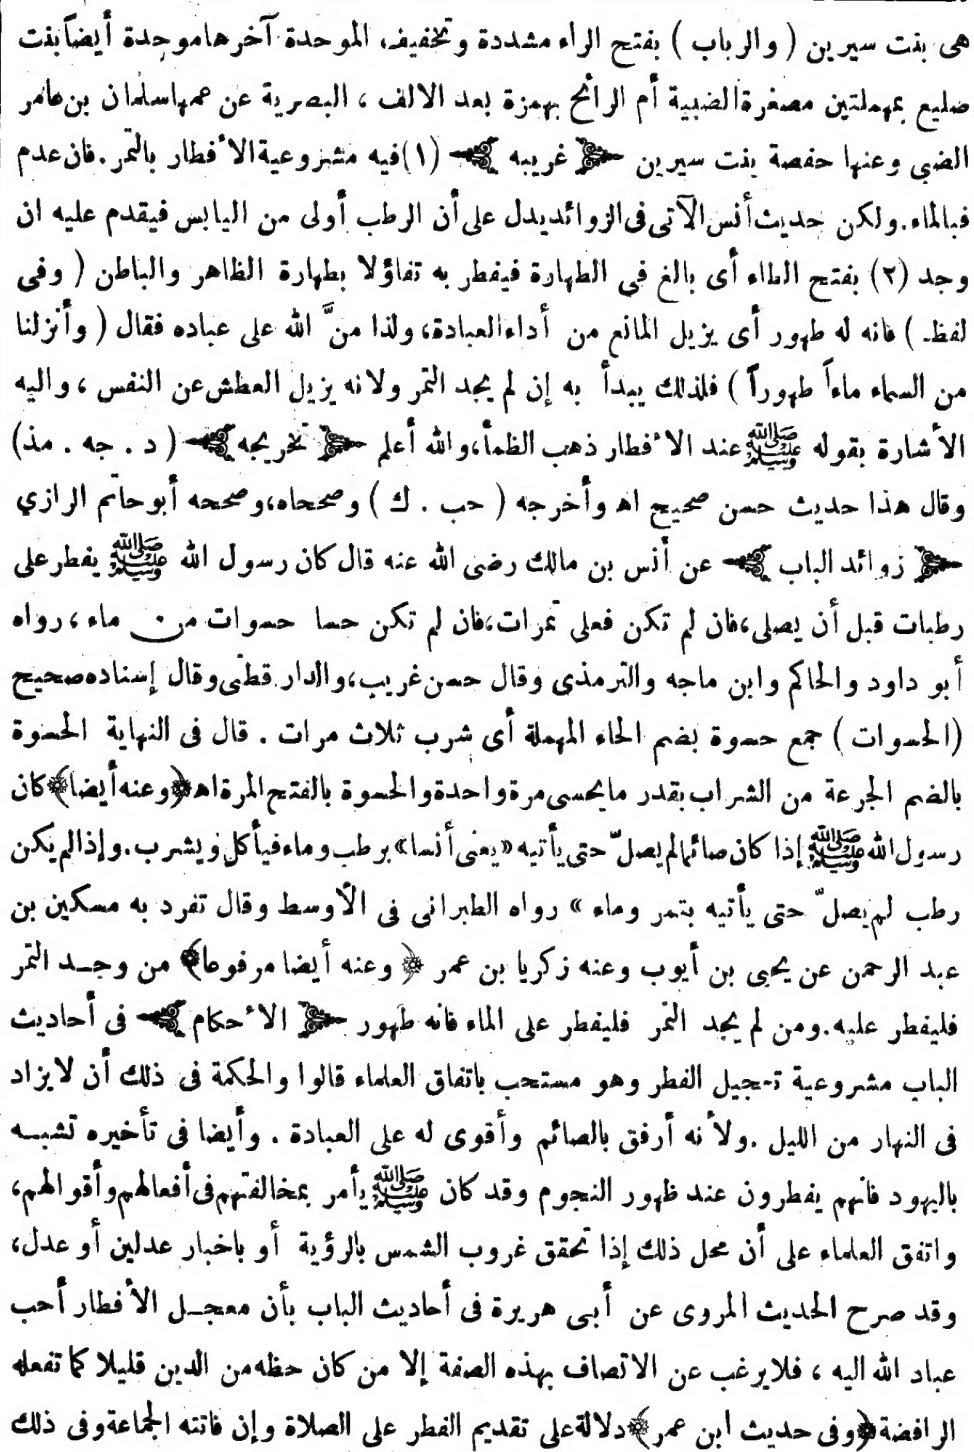 هى بنت سيرين ( والرباب ) بفتح الراء مشددة وتخفيف الموحدة آخرها موحدة أيضاً بنت
صليع بمهملتين مصغرة الضبية أم الرائح بهمزة بعد الالف ، البصرية عن عمها سلمان بن عامر
الضبي وعنها حفصة بنت سيرين ﴿ غريبه ﴾ (١) فيه مشروعية الأفطار بالتمر. فان عدم
فبالماء. ولكن حديث أنس الآتى فى الزوائد يدل على أن الرطب أولى من اليابس فيقدم عليه ان
وجد (٢) بفتح الطاء أى بالغ في الطهارة فيفطر به تفاؤلا بطهارة الظاهر والباطن ( وفى
لفظ ) فانه له طهور أى يزيل المانع من أداء العبادة، ولذا منَّ الله على عباده فقال ( وأنزلنا
من السماء ماءاً طهوراً ) فلذلك يبدأ به إن لم يجد التمر ولانه يزيل العطش عن النفس ، واليه
الأشارة بقوله ﷺ عند الأفطار ذهب الظمأ، والله أعلم ﴿ تخريجه ﴾ ( د . جه . مذ)
وقال هذا حديث حسن صحيح اه وأخرجه ( حب . ك ) وصححاه، وصححه أبو حاتم الرازي
﴿ زوائد الباب ﴾ عن أنس بن مالك رضى الله عنه قال كان رسول الله ﷺ يفطر على
رطبات قبل أن يصلى، فان لم تكن فعلى تمرات، فان لم تكن حسا حسوات من ماء ، رواه
أبو داود والحاكم وابن ماجه والترمذى وقال حسن غريب، والدار قطنى وقال إسناده صحيح
(الحسوات ) جمع حسوة بضم الحاء المهملة أى شرب ثلاث مرات . قال فى النهاية الحسوة
بالضم الجرعة من الشراب بقدر ما يحسى مرة واحدة والحسوة بالفتح المرة اه ﴿وعنه أيضا﴾ كان
رسول الله ﷺ إذا كان صائما لم يصلّ حتى يأتيه «يعنى أنسا» برطب وماء فيأكل ويشرب. وإذا لم يكن
رطب لم يصلّ حتى يأتيه بتمر وماء » رواه الطبرانى فى الأوسط وقال تفرد به مسكين بن
عبد الرحمن عن يحيى بن أيوب وعنه زكريا بن عمر ﴿ وعنه أيضا مرفوعا﴾ من وجد التمر
فليفطر عليه. ومن لم يجد التمر فليفطر على الماء فانه طهور ﴿ الأحكام ﴾ فى أحاديث
الباب مشروعية تعجيل الفطر وهو مستحب باتفاق العلماء قالوا والحكمة فى ذلك أن لا يزاد
فى النهار من الليل . ولأنه أرفق بالصائم وأقوى له على العبادة . وأيضا فى تأخيره تشبه
باليهود فانهم يفطرون عند ظهور النجوم وقد كان ﷺ يأمر بمخالفتهم فى أفعالهم وأقوالهم،
واتفق العلماء على أن محل ذلك إذا تحقق غروب الشمس بالرؤية أو باخبار عدلين أو عدل،
وقد صرح الحديث المروى عن أبى هريرة فى أحاديث الباب بأن معجل الأفطار أحب
عباد الله اليه ، فلا يرغب عن الاتصاف بهذه الصفة إلا من كان حظه من الدين قليلا كما تفعله
الرافضة ﴿وفى حديث ابن عمر﴾ دلالة على تقديم الفطر على الصلاة وإن فاتته الجماعة وفى ذلك